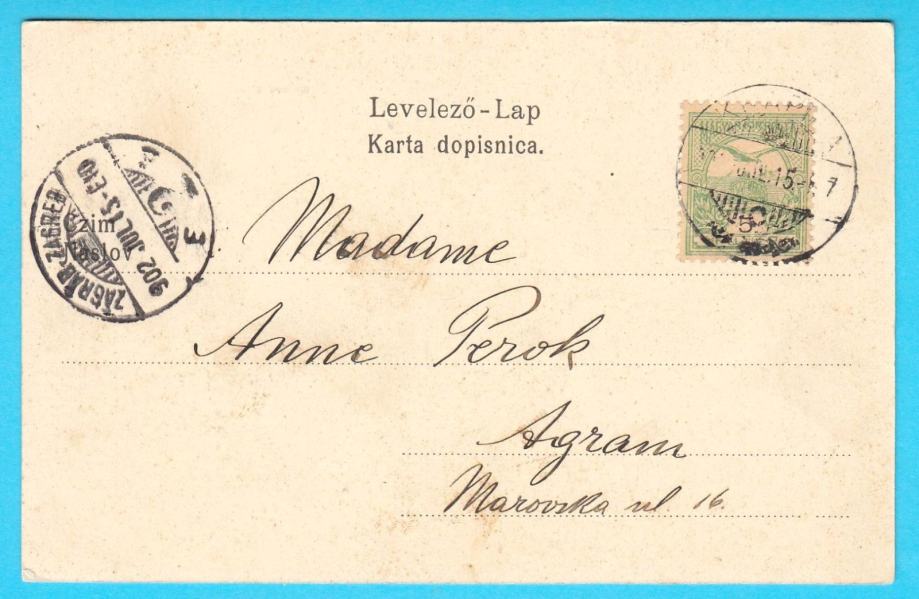 Levelező-Lap
Karta dopisnica.
Czim
Naslov
ZÁGRÁB ZAGREB
902 JUL 15
5
Madame
Anne Perok
Agram
Marovska ul 16.